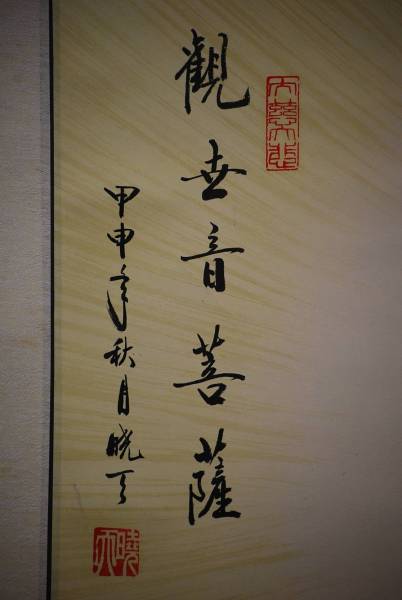 大慈大悲
觀世音菩薩
甲申年秋月晓天
曉天